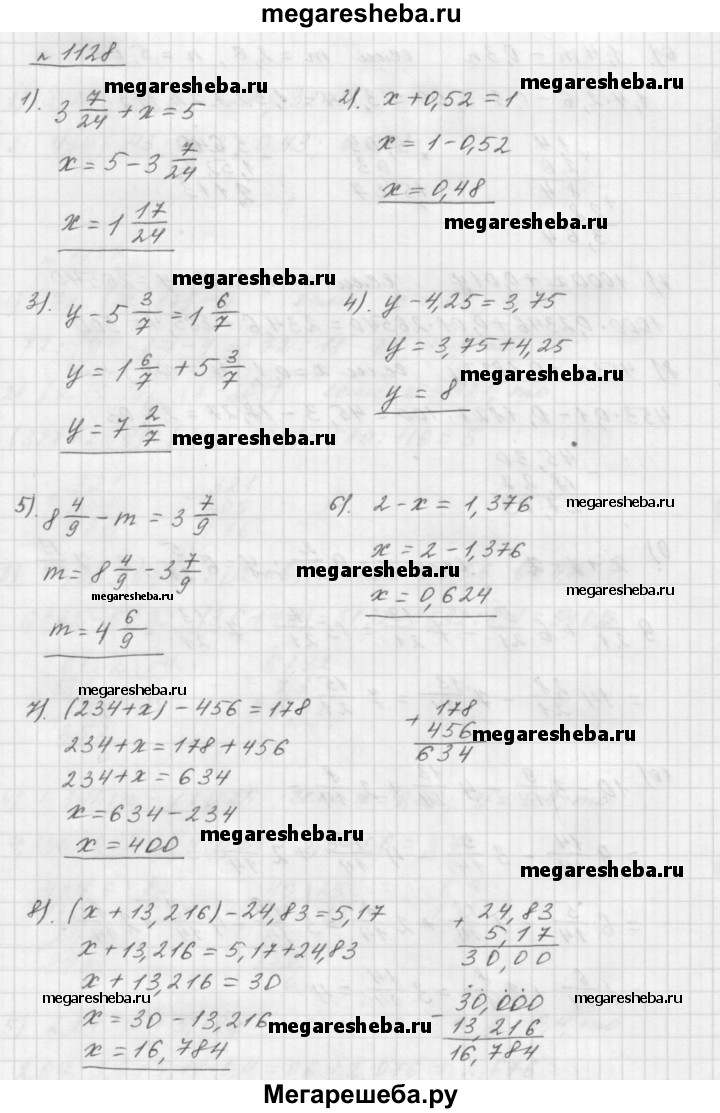 megaresheba.ru
№ 1128
1). 3 7/24 + x = 5
x = 5 - 3 7/24
x = 1 17/24
megaresheba.ru
2). x + 0,52 = 1
x = 1 - 0,52
x = 0,48
megaresheba.ru
megaresheba.ru
3). y - 5 3/7 = 1 6/7
y = 1 6/7 + 5 3/7
y = 7 2/7
megaresheba.ru
4). y - 4,25 = 3,75
y = 3,75 + 4,25
y = 8
megaresheba.ru
5). 8 4/9 - m = 3 7/9
m = 8 4/9 - 3 7/9
megaresheba.ru
m = 4 6/9
6). 2 - x = 1,376
x = 2 - 1,376
x = 0,624
megaresheba.ru
megaresheba.ru
megaresheba.ru
megaresheba.ru
7). (234 + x) - 456 = 178
234 + x = 178 + 456
234 + x = 634
x = 634 - 234
x = 400
megaresheba.ru
+ 178
456
634
megaresheba.ru
megaresheba.ru
8). (x + 13,216) - 24,83 = 5,17
x + 13,216 = 5,17 + 24,83
x + 13,216 = 30
x = 30 - 13,216
x = 16,784
megaresheba.ru
megaresheba.ru
+ 24,83
5,17
30,00
- 30,000
13,216
16,784
megaresheba.ru
Мегарешеба.ру